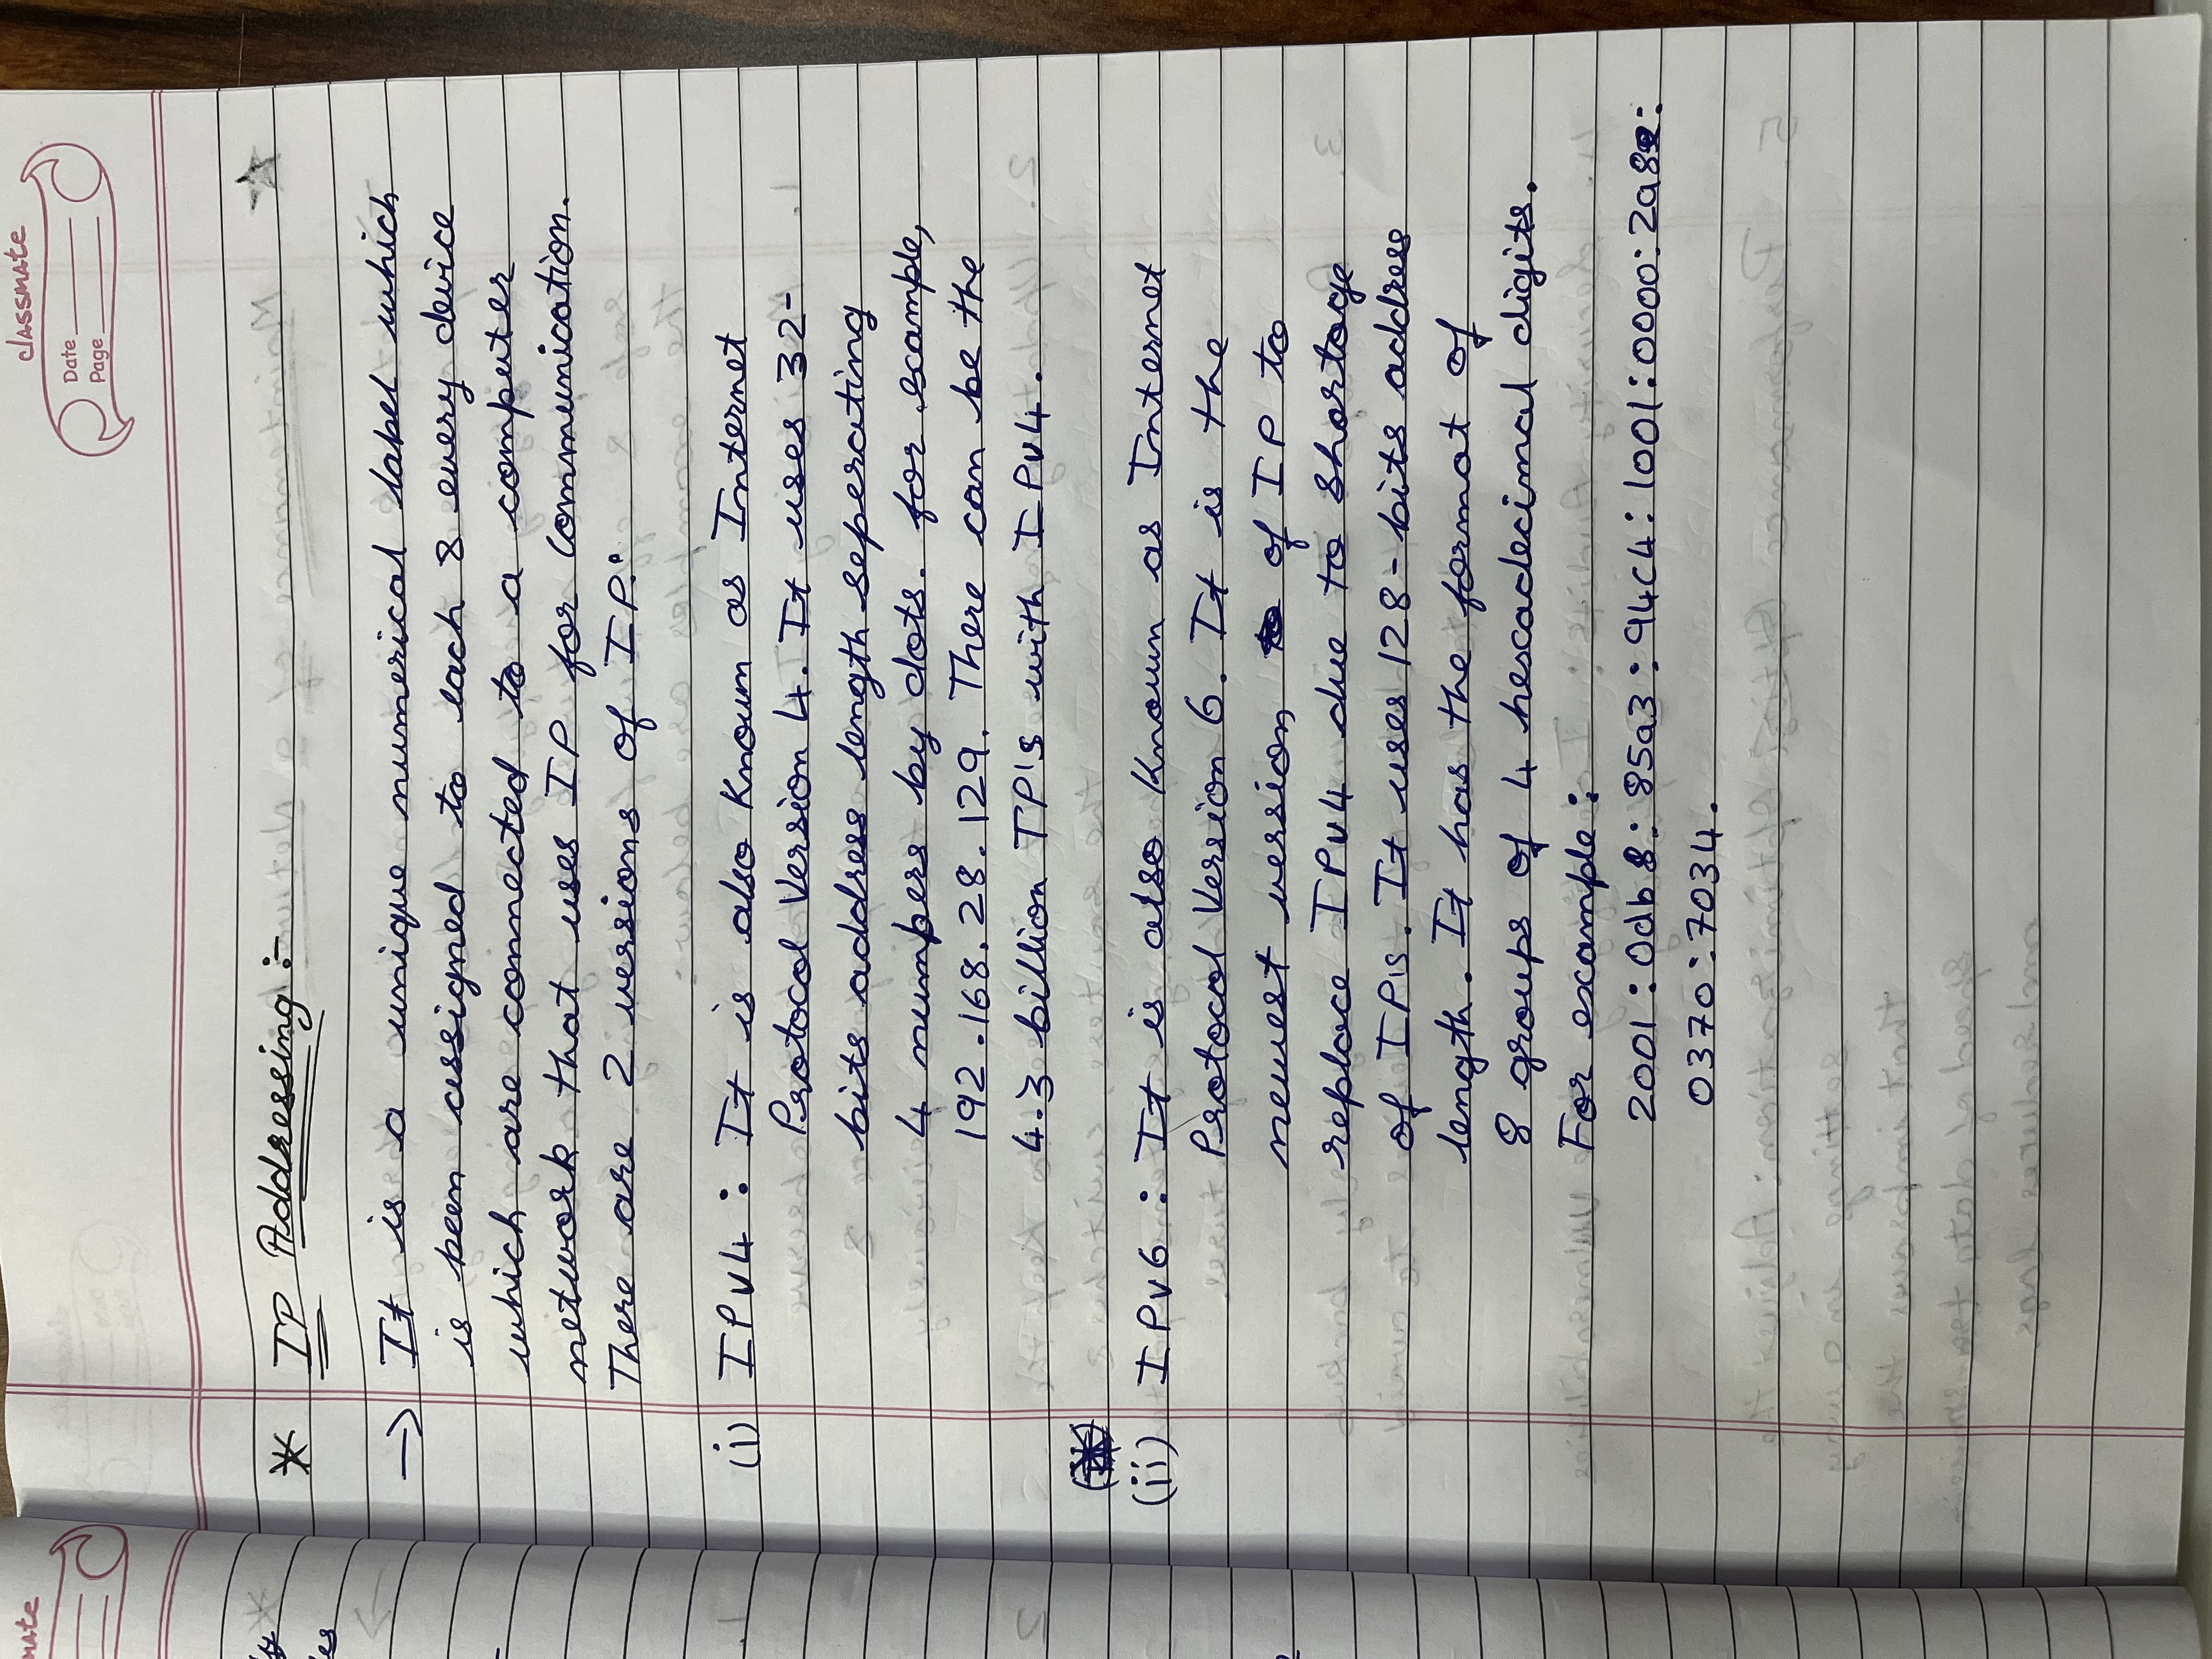 classmate
Date
Page
* IP Addressing :-
→ It is a unique numerical label which
is been assigned to each & every device
which are connected to a computer
network that uses IP for communication.
There are 2 versions of IP:
(i) IPv4 : It is also known as Internet
Protocol Version 4. It uses 32-
bits address length seperating
4 numbers by dots. for example,
192.168.28.129. There can be the
4.3 billion IP's with IPv4.
(ii) IPv6 : It is also known as Internet
Protocol Version 6. It is the
newest version of IP to
replace IPv4 due to shortage
of IP's. It uses 128-bits address
length. It has the format of
8 groups of 4 hexadecimal digits.
For example :
2001:0db8:85a3:94c4:1001:0000:2a82:
0370:7034.